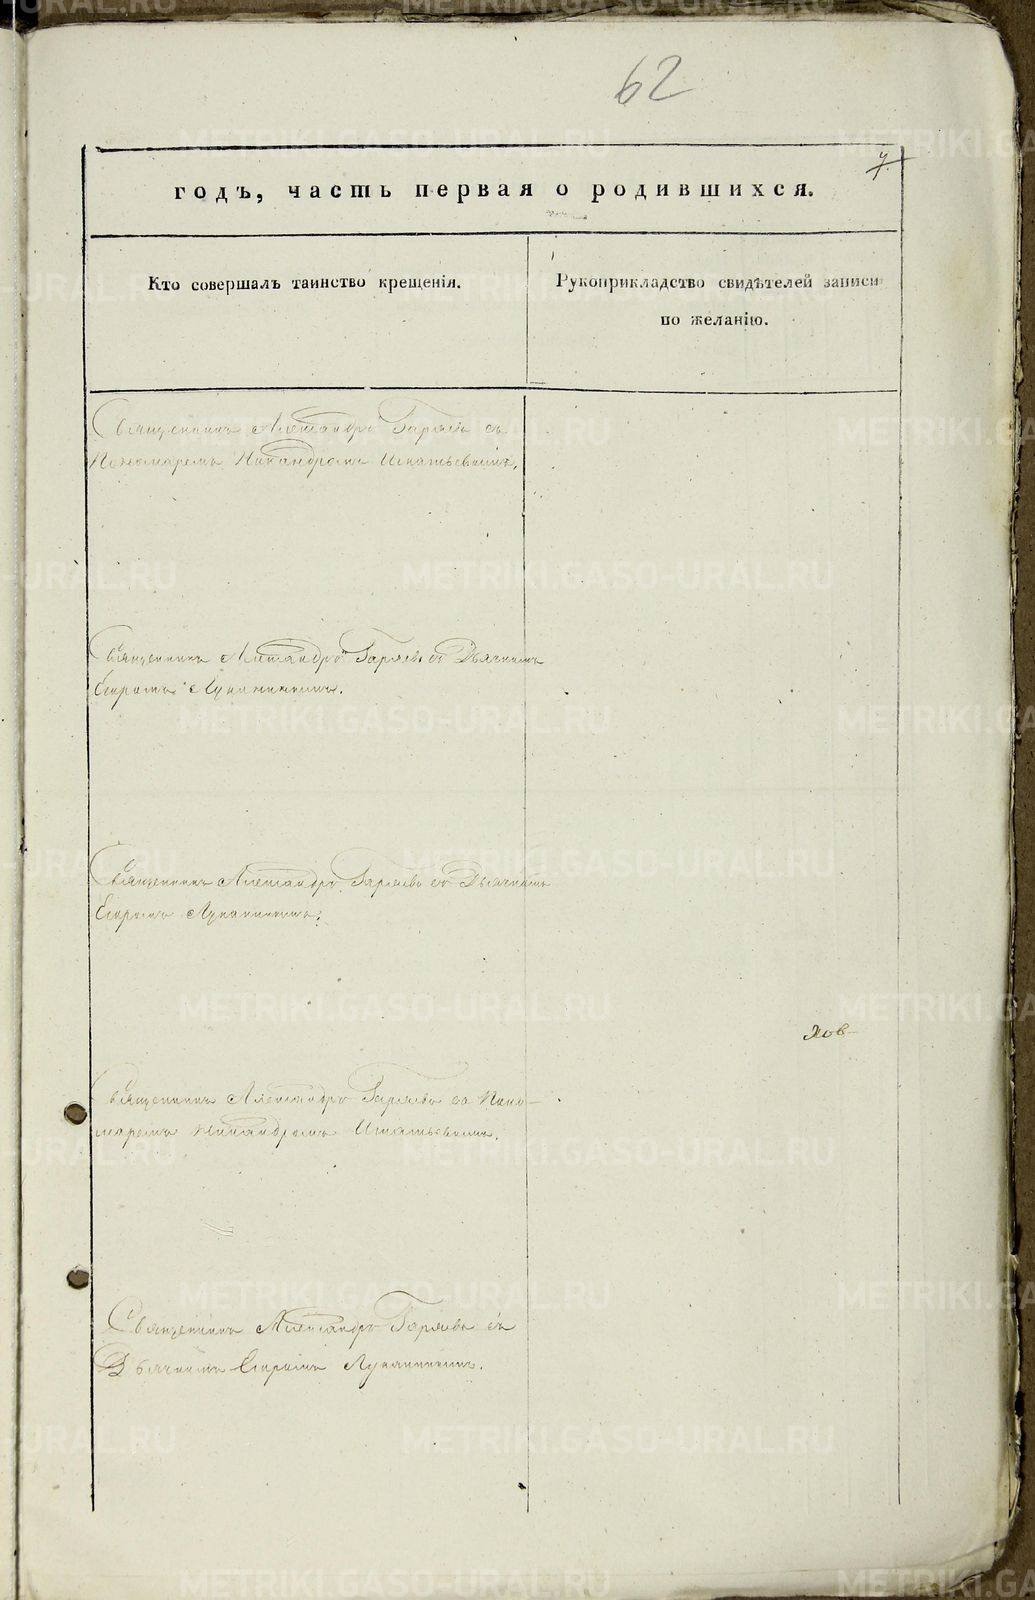 62
7.
годъ, часть первая о родившихся.
Кто совершалъ таинство крещенія.
Рукоприкладство свидѣтелей записи
по желанію.
Священникъ Александръ Гаряевъ съ
Пономаремъ Никандромъ Игнатьевымъ.
Священникъ Александръ Гаряевъ съ Дьячкомъ
Егоромъ Лукanинымъ.
Священникъ Александръ Гаряевъ съ Дьячкомъ
Егоромъ Луканинымъ.
Яов-
Священникъ Александръ Гаряевъ съ Поно-
маремъ Никандромъ Игнатьевымъ.
Священникъ Александръ Гаряевъ съ
Дьячкомъ Егоромъ Луканинымъ.
METRIKI.GASO-URAL.RU